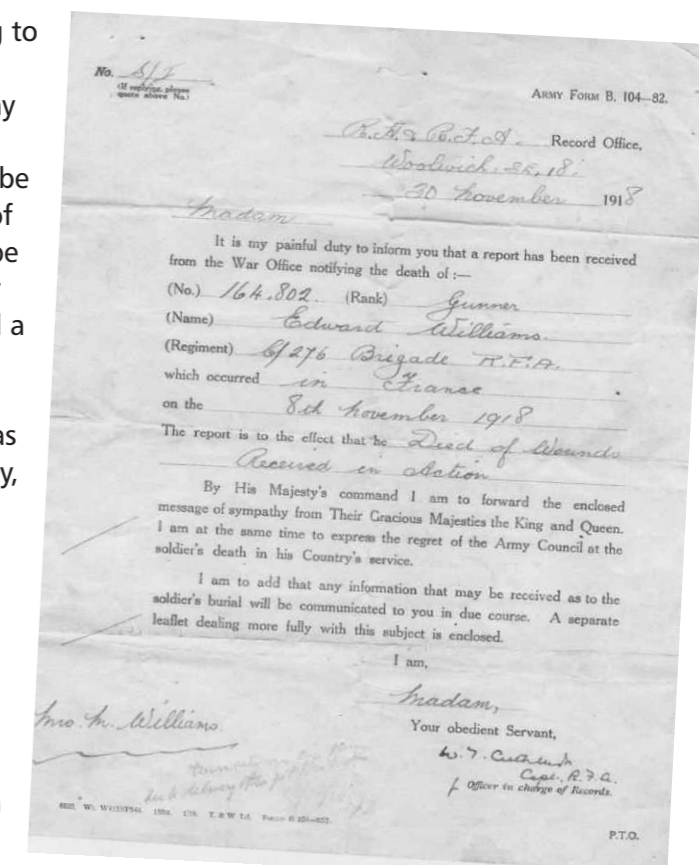 g to
ay
be
of
be
a
as
y,
No. S/I
(If replying, please
quote above No.)
ARMY FORM B. 104—82.
R.H. & R.F.A. Record Office,
Woolwich. S.E. 18.
30 November 1918
Madam
It is my painful duty to inform you that a report has been received
from the War Office notifying the death of :—
(No.) 164.802. (Rank) Gunner
(Name) Edward Williams.
(Regiment) 276 Brigade R.F.A.
which occurred in France
on the 8th November 1918
The report is to the effect that he Died of Wounds
Received in Action
By His Majesty's command I am to forward the enclosed
message of sympathy from Their Gracious Majesties the King and Queen.
I am at the same time to express the regret of the Army Council at the
soldier's death in his Country's service.
I am to add that any information that may be received as to the
soldier's burial will be communicated to you in due course. A separate
leaflet dealing more fully with this subject is enclosed.
I am,
Madam,
Your obedient Servant,
W. J.
Capt. R.F.A.
f Officer in charge of Records.
Mrs. M. Williams
P.T.O.